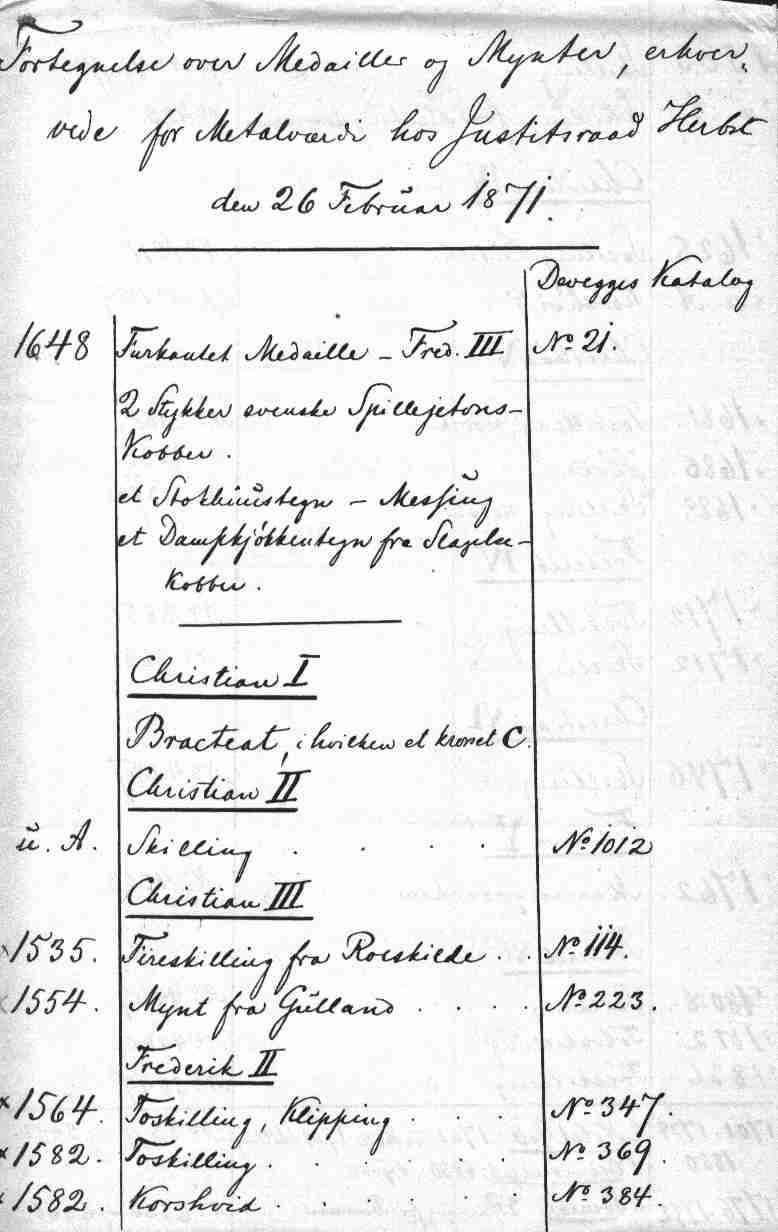 Fortegnelse over Medailler og Mynter, erhver-
vede for Metalværdi hos Justitsraad Herbst
den 26 Februar 1871.
Devegges Katalog
1648 Firkantet Medaille – Fred. III No 21.
2 Stykker svenske Spillejetons –
Kobber.
et Stokhuustegn – Messing
et Dampkjøkkentegn fra Slagelse –
Kobber.
Christian I
Bracteat, i hvilken et kronet C.
Christian II
u. A. Skilling . . . . No 1012
Christian III
x1535. Fireskilling fra Roeskilde . . No 114.
x1554. Mynt fra Gulland . . . . No 223.
Frederik II
x1564. Toskilling, Klipping . . . No 347.
x1582. Toskilling . . . . . . No 369.
x1582. Korshvid . . . . . . No 384.